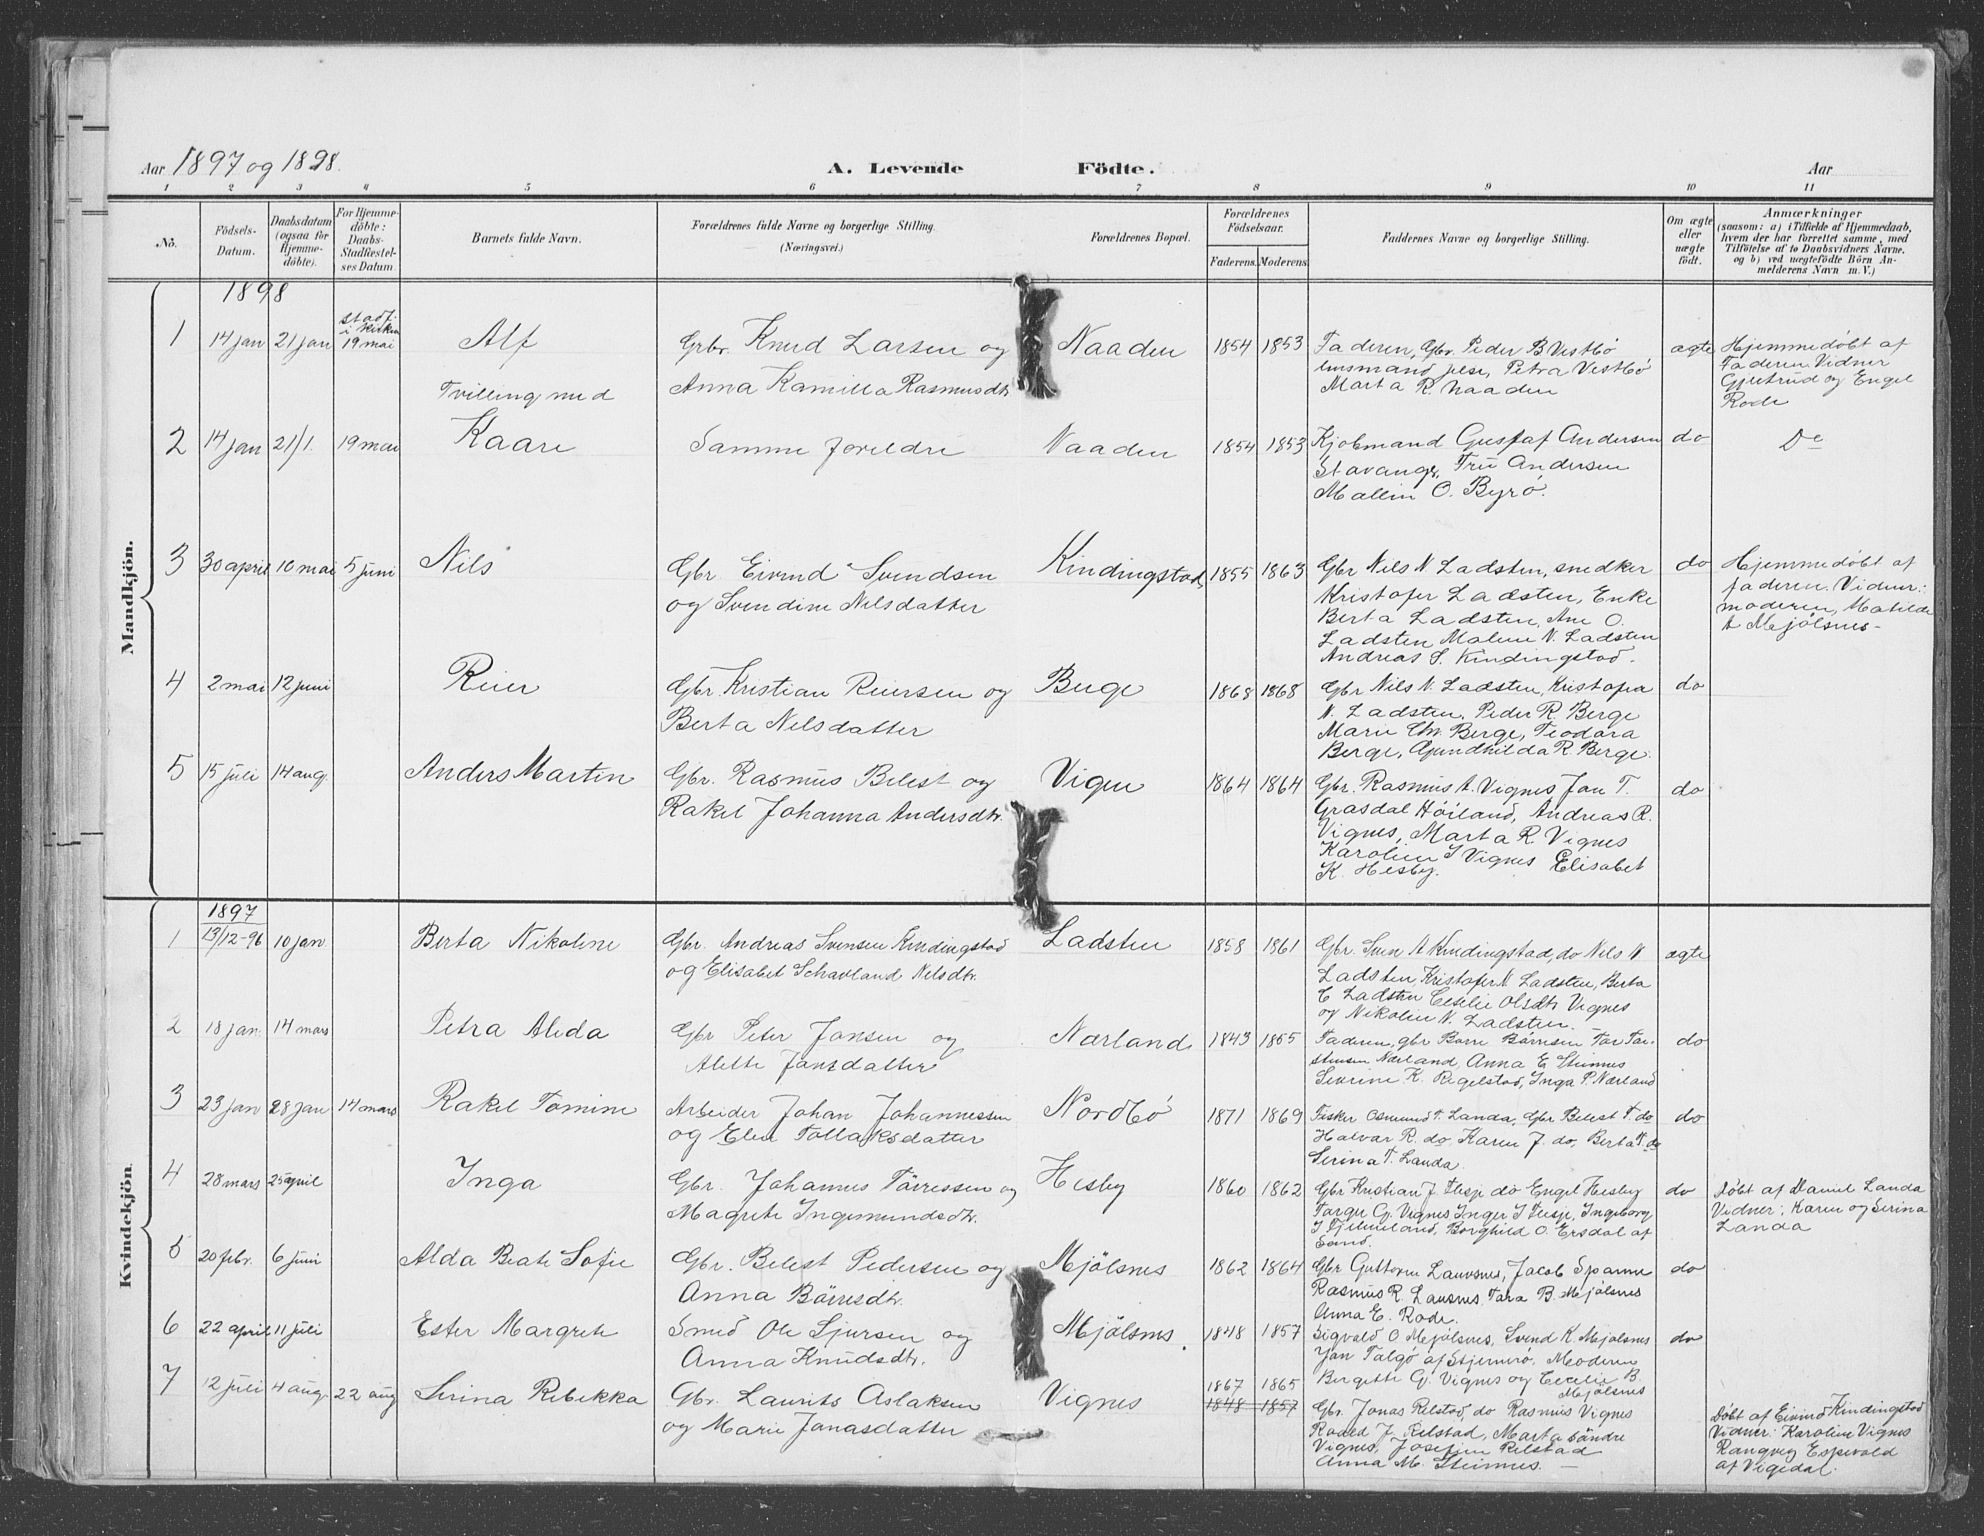 Aar 1897 og 1898. A. Levende Födte. Aar
1 2 3 4 5 6 7 8 9 10 11
No. Födsels-Datum. Daabsdatum (ogsaa for Hjemme-döbte). For Hjemme-döbte: Daabs-Stadfæstel-ses Datum Barnets fulde Navn. Forældrenes fulde Navne og borgerlige Stilling. (Næringsvei.) Forældrenes Bopæl. Forældrenes Födselsaar. Faderens. Moderens. Faddernes Navne og borgerlige Stilling. Om ægte eller uægte födt. Anmærkninger (saasom: a) i Tilfælde af Hjemmedaab, hvem der har forrettet samme, med Tilföielse af to Daabsvidners Navne, og b) ved uægtefödte Börn An-melderens Navn m. V.)
Mandkjön.
1898
stadf.
i kirken
1 14 jan 21 jan 19 mai Alf Grbr. Knud Larsen og Naaden 1854 1853 Faderen, Gbr. Peder B Vestbö ægte Hjemmedøbt af
lensmand Jelsa, Petra Vestbö Faderen Vidner
Tvilling med Anna Kamilla Rasmusdtr Marta R. Naaden Gjertrud og Engel
Rode
2 14 jan 21/1. 19 mai Kaare Samme foreldre Naaden 1854 1853 Kjøbmand Gustaf Andersen do Do
Stavanger, Fru Andersen
Mallin O. Byrö.
3 30 april 10 mai 5 juni Nils Gbr Eivind Svendsen Kindingstad 1855 1863 Gbr Nils N Ladsten, snedker do Hjemmedøbt af
og Svendine Nilsdatter Kristofer Ladsten, Enke faderen. Vidner:
Berta Ladsten, Ane O. moderen, Matilde
Ladsten Malene N. Ladsten A Mejölsnes-
Andreas S. Kindingstad.
4 2 mai 12 juni Reier Gbr Kristian Reiersen og Berge 1868 1868 Gbr Nils N. Ladsten, Kristofer do
Berta Nilsdatter N. Ladsten, Peder R. Berge
Marie Chr. Berge, Teodora
Berge, Gundhilda R. Berge.
5 15 juli 14 aug. Anders Martin Gbr. Rasmus Belest og Vignes 1864 1864 Gbr. Rasmus A. Vignes Jan T. do
Rakel Johanna Andersdtr. Grasdal Höiland, Andreas R.
Vignes, Marta R. Vignes
Karolin J Vignes Elisabet
K. Hesby.
Kvindekjön.
1897
1 13/12-96 10 jan Berta Nikoline Gbr. Andreas Svensen Kindingstad Ladsten 1858 1861 Gbr. Sven A Kindingstad, do Nils N ægte
og Elisabet Schavland Nilsdtr. Ladsten, Kristofer N Ladsten, Berta
E Ladsten Cecilie Olsdtr Vignes
og Nikolin N. Ladsten.
2 18 jan. 14 mars Petra Aleda Gbr Peter Jansen og Nærland 1843 1855 Faderen, gbr Börre Börresen Tor Tor- do
Alette Jansdatter stensen Nærland, Anna E Steinnes
Severine K. Regelstad, Inga P. Nærland
3 23 jan 28 jan 14 mars Rakel Tomine Arbeider Johan Johannessen Nordbö 1871 1869 Fisker Osmund T. Landa, Gbr Belest T. do do
og Elen Tollaksdatter Halvar R. do, Karen J. do, Berta T. do
Serina T. Landa.
4 28 mars 25 april Inga Gbr. Johannes Törressen og Hesby 1860 1862 Gbr Kristian J. Tesje do Engel Hesby do Døbt af Daniel Landa
Magrete Ingemundsdtr. Targer G. Vignes Inger J Tesje, Ingeborg Vidner: Karen og Serina
J Fjelneland, Borghild O. Ersdal af Landa
Sand.
5 20 febr. 6 juni Alda Beate Sofie Gbr. Belest Pedersen og Mjölsnes 1862 1864 Gbr Guttorm Lauvsnes, Jacob Spanne do
Anna Börresdtr. Rasmus R. Lausnes, Tara B. Mejölsnes
Anna E. Rode.
6 22 april 11 juli Ester Margrete Smed Ole Sjursen og Mjölsnes. 1848 1857 Sigvald O Mejölsnes, Svend K. Mejölsnes do
Anna Knudsdtr. Jan Talgö af Stjernerö, Moderen
Bergitte G. Vignes og Cecilie B.
Mejölsnes
7 12 juli 4 aug. 22 aug Serina Rebekka Gbr. Laurits Aslaksen Vignes 1867 1865 1848 1857 Gbr. Jonas Relstad, do Rasmus Vignes Døbt af Eivind Kindingstad
og Marie Jonasdatter Roded J. Relstad, Marta Söndre Vidner: Karoline Vignes
Vignes, Josefine Relstad Rangveg Espevold
Anna M. Steinnes. af Vigedal.